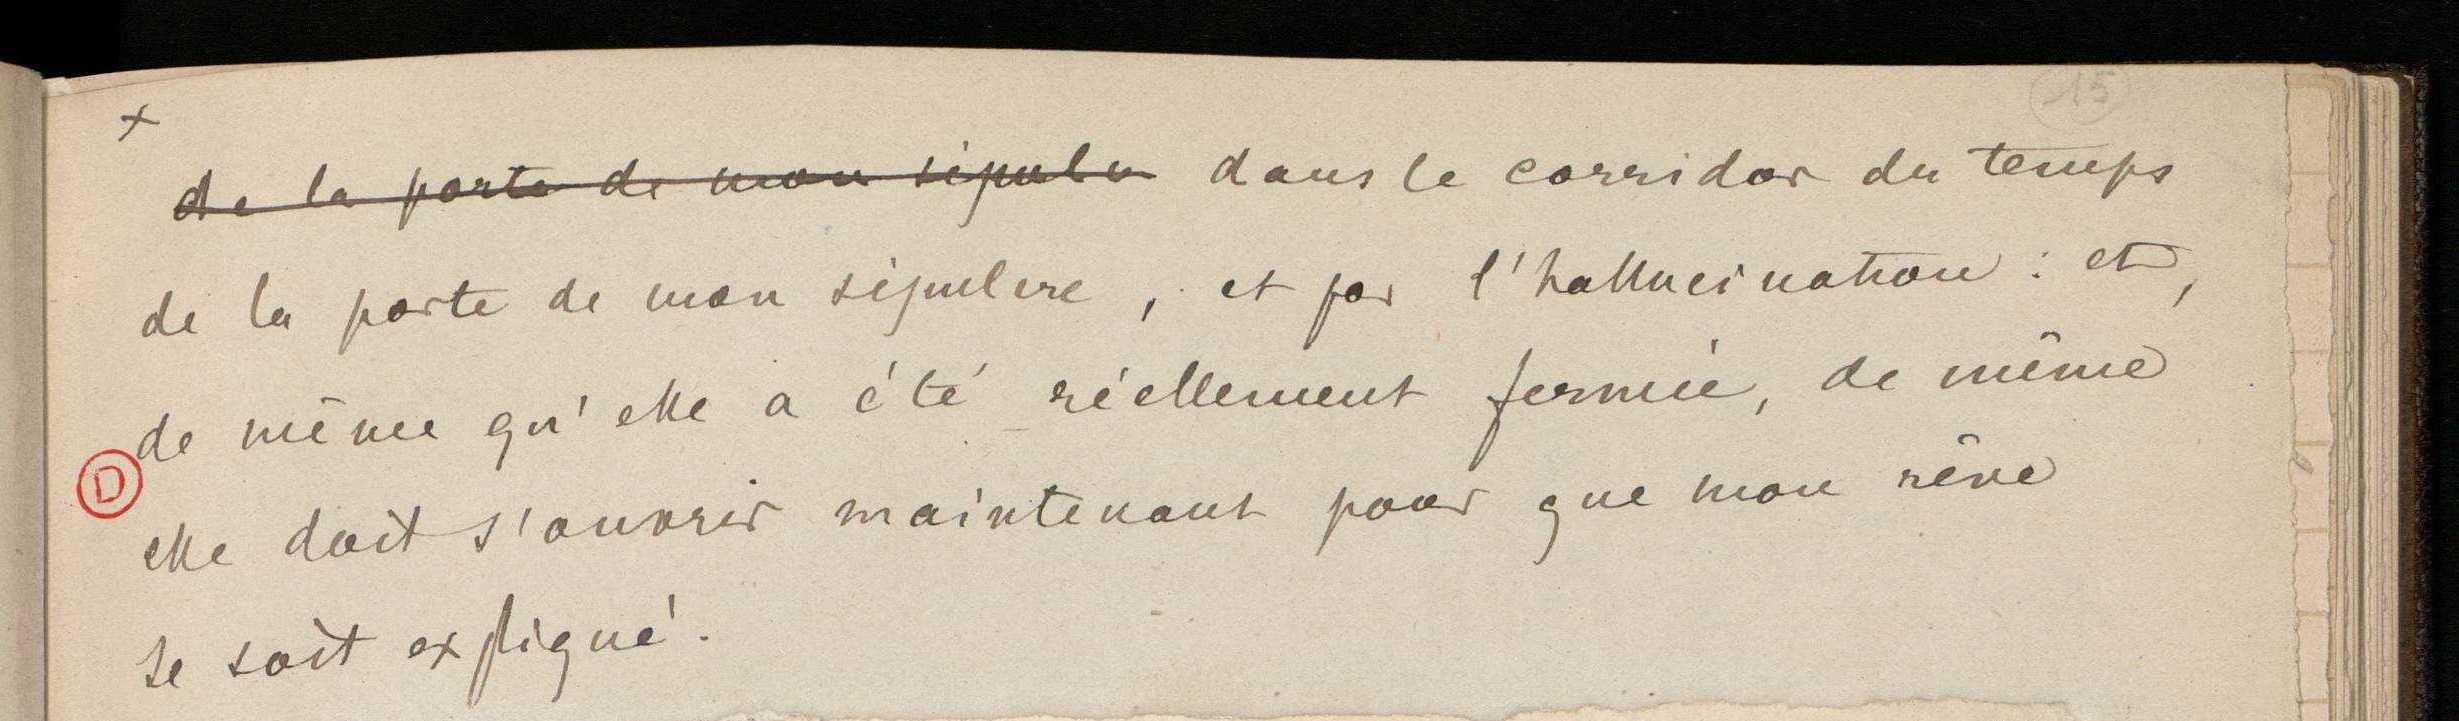 15
+
de la porte de mon sépulcre dans le corridor du temps
de la porte de mon sépulcre, et par l'hallucination : et,
de même qu'elle a été réellement fermée, de même
D
elle doit s'ouvrir maintenant pour que mon rêve
se soit expliqué.